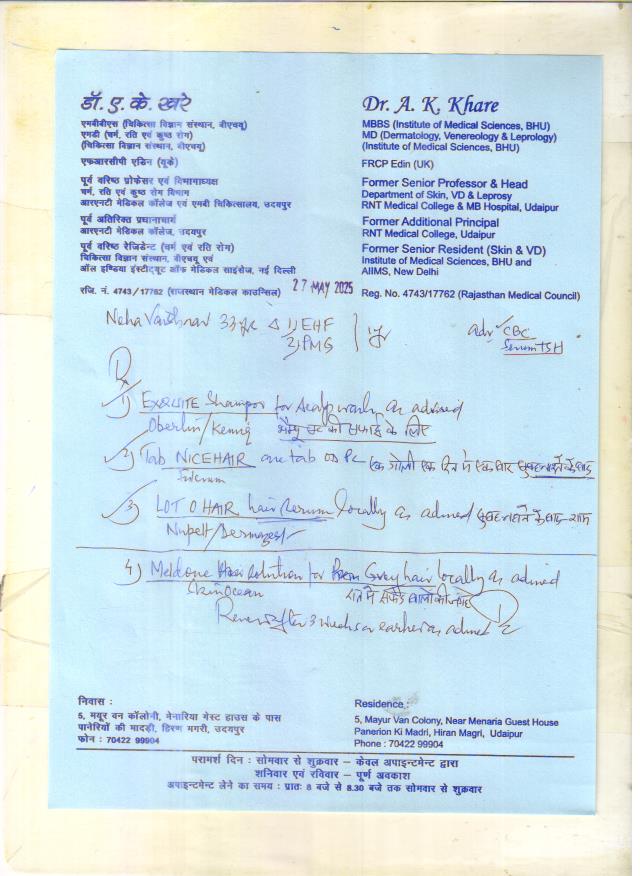 डॉ. ए. के. खरे
एमबीबीएस (चिकित्सा विज्ञान संस्थान, बीएचयू)
एमडी (चर्म, रति एवं कुष्ठ रोग)
(चिकित्सा विज्ञान संस्थान, बीएचयू)
एफआरसीपी एडिन (यूके)
पूर्व वरिष्ठ प्रोफेसर एवं विभागाध्यक्ष
चर्म, रति एवं कुष्ठ रोग विभाग
आरएनटी मेडिकल कॉलेज एवं एमबी चिकित्सालय, उदयपुर
पूर्व अतिरिक्त प्रधानाचार्य
आरएनटी मेडिकल कॉलेज, उदयपुर
पूर्व वरिष्ठ रेजिडेन्ट (चर्म एवं रति रोग)
चिकित्सा विज्ञान संस्थान, बीएचयू एवं
ऑल इण्डिया इंस्टीट्यूट ऑफ मेडिकल साइंसेज, नई दिल्ली
रजि. नं. 4743/17762 (राजस्थान मेडिकल काउन्सिल)
Dr. A. K. Khare
MBBS (Institute of Medical Sciences, BHU)
MD (Dermatology, Venereology & Leprology)
(Institute of Medical Sciences, BHU)
FRCP Edin (UK)
Former Senior Professor & Head
Department of Skin, VD & Leprosy
RNT Medical College & MB Hospital, Udaipur
Former Additional Principal
RNT Medical College, Udaipur
Former Senior Resident (Skin & VD)
Institute of Medical Sciences, BHU and
AIIMS, New Delhi
Reg. No. 4743/17762 (Rajasthan Medical Council)
27 MAY 2025
Neha 33 1) EHF adv CBC
2) PMG Serum TSH
1) Shampoo for as advised
Oberlin/ की सफाई के लिए
2) Tab NICEHAIR one tab OD PC एक गोली एक दिन में एक बार
3) LOT O HAIR hair serum locally as advised
4) solution for Grey hair locally as advised
रात में सफेद बालों
Review after 3 weeks or earlier as advised
निवास :
5, मयूर वन कॉलोनी, मेनारिया गेस्ट हाउस के पास
पानेरियों की मादड़ी, हिरण मगरी, उदयपुर
फोन : 70422 99904
Residence :
5, Mayur Van Colony, Near Menaria Guest House
Panerion Ki Madri, Hiran Magri, Udaipur
Phone : 70422 99904
परामर्श दिन : सोमवार से शुक्रवार – केवल अपाइन्टमेन्ट द्वारा
शनिवार एवं रविवार – पूर्ण अवकाश
अपाइन्टमेन्ट लेने का समय : प्रातः 8 बजे से 8.30 बजे तक सोमवार से शुक्रवार